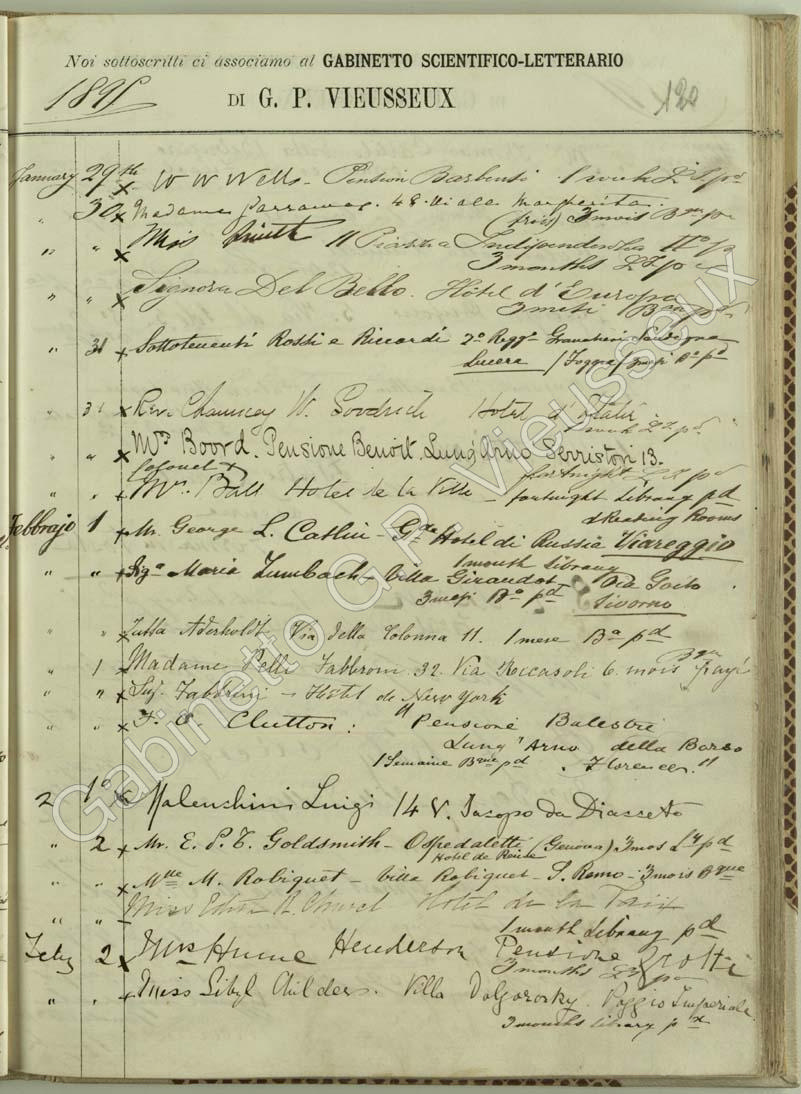 Noi sottoscritti ci associamo al GABINETTO SCIENTIFICO-LETTERARIO
1891 DI G. P. VIEUSSEUX 120
January 29th x W W Wells - Pension Barbensi 1 week Ly pd
" 30 x Madame 48. Viale Margherita.
(frois) 3 mois Bque
" " x Miss 11 Piazza Indipendenza
3 months Ly pd
" " x Signora Del Bello. Hôtel d'Europa
3 mesi
" 31 x Sottotenenti Rossi e Riccardi 2o Reggo Granatieri Sardegna
Lucera (Foggia) 3 mesi Ba pd
" 31 x Rev. Chauncey W. Goodrich Hotel d'Italie
1 week Ly pd
" " x Mrs Boord. Pensione Benoit, Lung'Arno Serristori 13.
fortnight Ly pd
Colonel &
" " x Mrs. Ball Hotel de la Ville - fortnight Library pd
& Reading Rooms
Febbrajo 1 x Mr. George L. Catlin - Gde Hotel di Russia Viareggio
1 month Library
" " x Siga Maria Zumbach - Villa Giraudot - Via Goito
3 mesi Ba pd Livorno
" " x Aderholdt Via della Colonna 11. 1 mese Ba pd
" 1 x Madame Pelli Fabbroni 32. Via Ricasoli 6. mois Bque payé
" " x Hôtel de New York
" " x F. Clutton. Pensione Balestri
Lung' Arno della Borsa
1 Semaine Bque pd . Florence. "
2 1o x Malenchini Luigi 14 V. Jacopo da Diacceto
" 2 x Mr. E. P. T. Goldsmith - Ospedaletti (Genova) 3 mos Ly pd
Hotel de Reine
" " x Mlle M. Robiquet - Villa Robiquet - S. Remo - 3 mois Bque
" " Miss Edith Hotel de la Paix
1 month Library pd
Feby 2 x Mrs Hume Henderson Pensione
3 months
" " x Miss Sibyl Childers. Villa Dolgorosky. Poggio Imperiale.
3 months library pd
Gabinetto G.P. Vieusseux